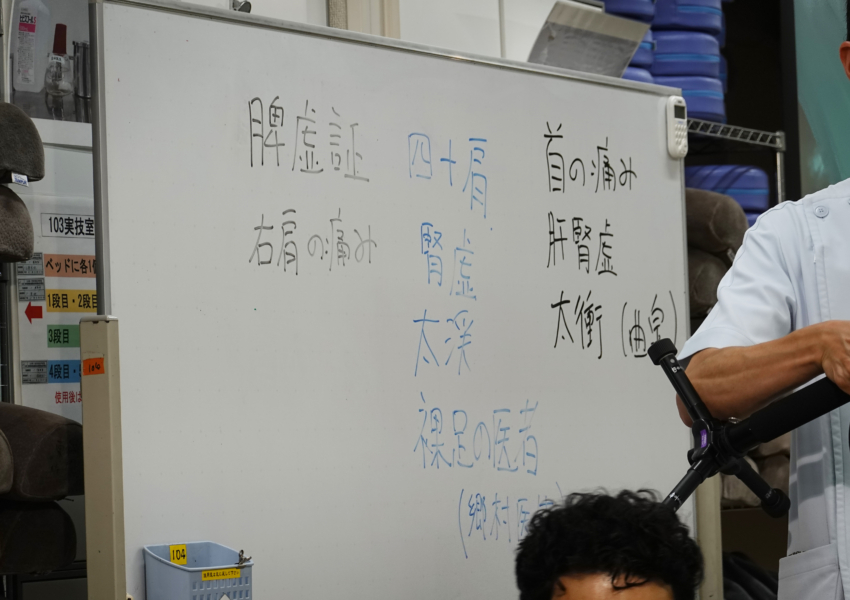 脾虚証
右肩の痛み
四十肩
腎虚
太渓
裸足の医者
(郷村医
首の痛み
肝腎虚
太衝(曲泉)
103実技室
ベッドに各1
1段目・2段
3段目
4段目・5
使用後は
104
104